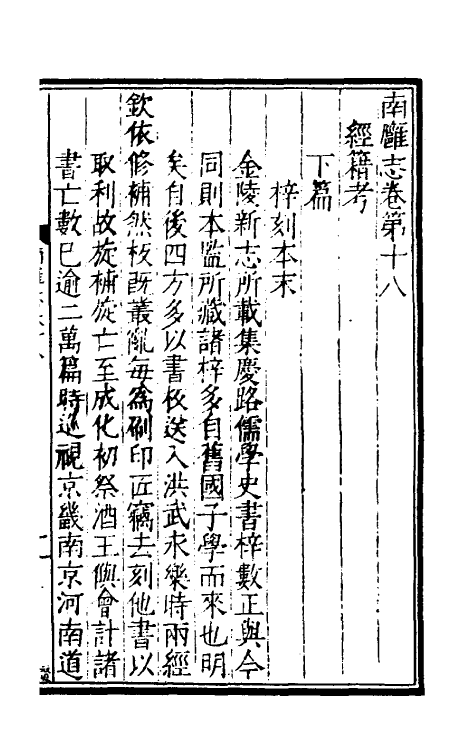 南廱志卷第十八
經籍考
下篇
梓刻本末
金陵新志所載集慶路儒學史書梓數正與今
同則本監所藏諸梓多自舊國子學而來也明
矣自後四方多以書板送入洪武永樂時兩經
欽依修補然板既叢亂每爲刷印匠竊去刻他書以
取利故旋補旋亡至成化初祭酒王㒜會計諸
書亡數已逾二萬篇時巡視京畿南京河南道